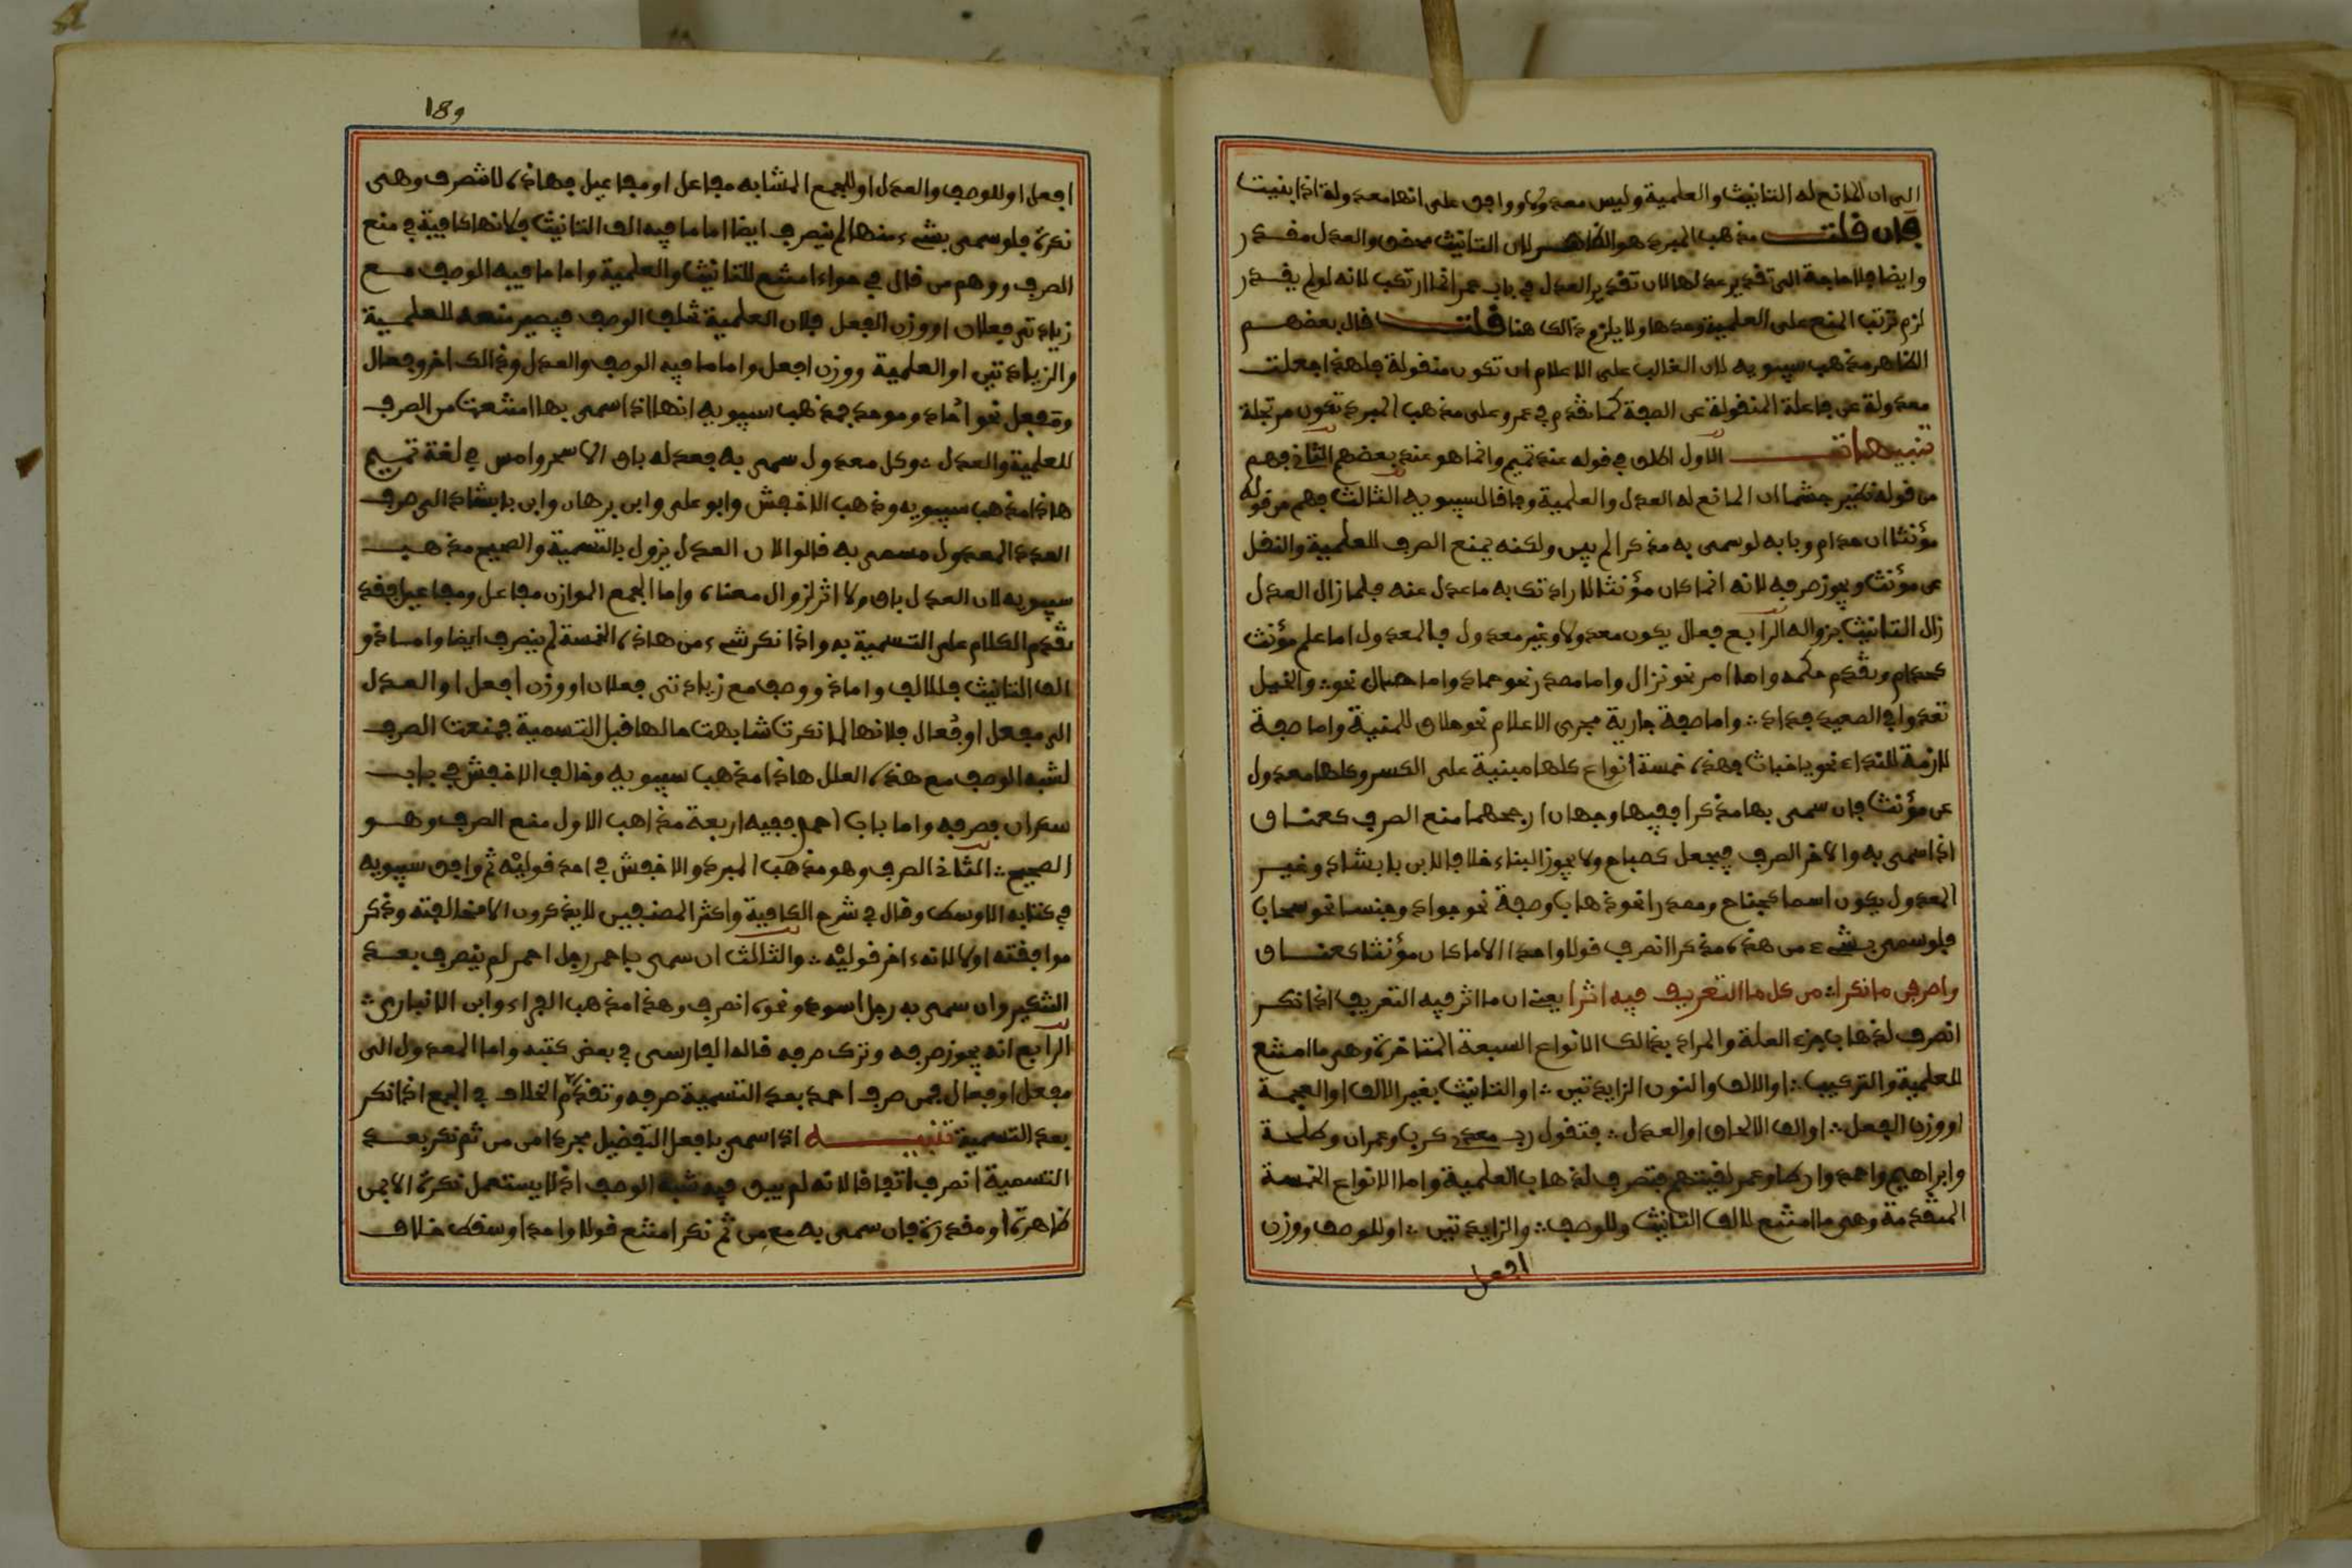 الى ان المانع له التانيث والعلمية وليس معدولا ووافق على انها معدولة اذا بنيت
فان قلت مذهب المبرد هو الظاهر لان التانيث محقق والعدل مقدر
وايضا فلا حاجة الى تقدير عدلها لان تقدير العدل في باب عمر انما ارتكب لانه لو لم يقدر
لزم ترتب المنع على العلمية وحدها ولا يلزم ذالك هنا قلت قال بعضهم
الظاهر مذهب سيبويه لان الغالب على الاعلام ان تكون منقولة فلهذا جعلت
معدولة عن فاعلة المنقولة عن الصفة كما تقدم في عمر وعلى مذهب المبرد تكون مرتجلة
تنبيهات الاول اطلق في قوله عند تميم وانما هو عند بعضهم الثاني فهم
من قوله نظير جشما ان المانع له العدل والعلمية وفاقا لسيبويه الثالث فهم من قوله
مؤنثا ان حذام وبابه لو سمى به مذكر الم يبن ولكنه يمنع الصرف للعلمية والنقل
عن مؤنث ويجوز صرفه لانه انما كان مؤنثا لارادتك به ما عدل عنه فلما زال العدل
زال التانيث بزواله الرابع فعال يكون معدولا وغير معدول فالمعدول اما علم مؤنث
كحذام وتقدم حكمه واما امر نحو نزال واما مصدر نحو حماد واما حال نحو؞ والخيل
تعدوا في الصعيد بداد؞ واما صفة جارية مجرى الاعلام نحو حلاق للمنية واما صفة
لازمة للنداء نحو يا خباث فهذه خمسة انواع كلها مبنية على الكسر وكلها معدول
عن مؤنث فان سمى بها مذكر ففيها وجهان ارجحهما منع الصرف كعناق
اذا سمى به والاخر الصرف فيجعل كصباح ولا يجوز البناء خلافا لابن بابشاد وغير
المعدول يكون اسما كجناح ومصدرا نحو ذهاب وصفة نحو جواد وجنسا نحو سحاب
فلو سمى بشىء من هذه مذكر انصرف قولا واحدا الا ما كان مؤنثا كعناق
واصرفن ما نكرا؞ من كل ما التعريف فيه اثرا يعني ان ما اثر فيه التعريف اذا نكر
انصرف لذهاب جزء العلة والمراد بذالك الانواع السبعة المتاخرة وهي ما امتنع
للعلمية والتركيب؞ او الالف والنون الزايدتين؞ او التانيث بغير الالف او العجمة
او وزن الفعل؞ او الف الالحاق او العدل؞ فتقول رب معدي كرب وعمران وطلحة
وابراهيم واحمد وارطا وعمر لقيتهم فتصرف لذهاب العلمية واما الانواع الخمسة
المتقدمة وهي ما امتنع لالف التانيث وللوصف؞ والزايدتين؞ او للوصف ووزن
افعل
189
افعل او للوصف والعدل او للجمع المشابه مفاعل او مفاعيل فهاذه لا تنصرف وهي
نكرة فلو سمى بشىء منها لم ينصرف ايضا اما ما فيه الف التانيث فلانها كافية في منع
الصرف ووهم من قال في حواء امتنع للتانيث والعلمية واما ما فيه الوصف مع
زيادتي فعلان او وزن افعل فلان العلمية تخلف الوصف فيصير منعه للعلمية
والزيادتين او العلمية ووزن افعل واما ما فيه الوصف والعدل وذالك اخر وفعال
ومفعل نحو احاد وموحد فمذهب سيبويه انها اذا سمى بها امتنعت من الصرف
للعلمية والعدل؞ وكل معدول سمى به فعدله باق الا سحر وامس في لغة تميم
هاذا مذهب سيبويه وذهب الاخفش وابو على وابن برهان وابن بابشاد الى صرف
العدد المعدول مسمى به قالوا لان العدل يزول بالتسمية والصحيح مذهب
سيبويه لان العدل باق ولا اثر لزوال معناه واما الجمع الموازن مفاعل ومفاعيل فقد
تقدم الكلام على التسمية به واذا نكر شىء من هاذه الخمسة لم ينصرف ايضا واما ذو
الف التانيث فللالف واما ذو وصف مع زيادتي فعلان او وزن افعل او العدل
الى مفعل او فعال فلانها لما نكرت شابهت حالها قبل التسمية فمنعت الصرف
لشبه الوصف مع هذه العلل هاذا مذهب سيبويه وخالف الاخفش في باب
سكران فصرفه واما باب احمر ففيه اربعة مذاهب الاول منع الصرف وهو
الصحيح؞ الثاني الصرف وهو مذهب المبرد والاخفش في احد قوليه ثم وافق سيبويه
في كتابه الاوسط وقال في شرح الكافية واكثر المصنفين لا يذكرون الا مخالفته وذكر
موافقته اولا لانه ءاخر قوليه؞ والثالث ان سمى باحمر رجل احمر لم ينصرف بعد
التنكير وان سمى به رجل اسود ونحوه انصرف وهذا مذهب الفراء وابن الانباري؞
الرابع انه يجوز صرفه وترك صرفه قاله الفارسى في بعض كتبه واما المعدول الى
مفعل او فعال فمن صرف احمد بعد التسمية صرفه وتقدم الخلاف في الجمع اذا نكر
بعد التسمية تنبيه اذا سمى بافعل التفضيل مجردا من من ثم نكر بعد
التسمية انصرف اتفاقا لانه لم يبق فيه شبه الوصف اذ لا يستعمل نكرة الا بمن
ظاهرة او مقدرة فان سمى به مع من ثم نكر امتنع قولا واحدا وسقط خلاف